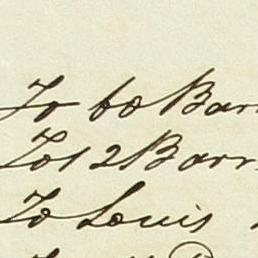 To 60 Bar
To 12 Barr
To Louis